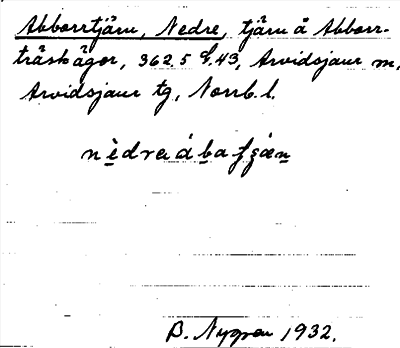 Abborrtjärn, Nedre, tjärn å Abborr-
träskägor, 362,5 43, Arvidsjaur m,
Arvidsjaur tg, Norrb. l.
B. Nygren 1932.